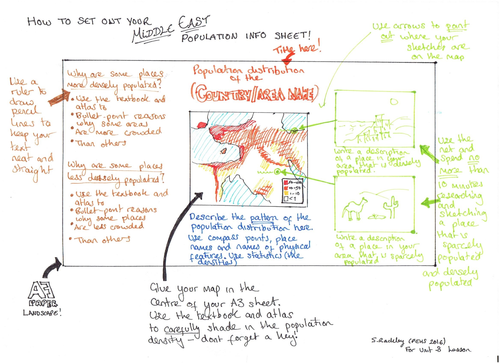 HOW TO SET OUT YOUR
MIDDLE EAST
POPULATION INFO SHEET!
Title here!
Use arrows to point
out where your
sketches are
on the map
Use a
ruler to
draw
pencil
lines to
help your
text
neat and
straight
Why are some places
more densely populated?
• Use the textbook and
atlas to
• Bullet-point reasons
why some areas
• Are more crowded
• Than others
Why are some places
less densely populated?
• Use the textbook
and atlas to
• Bullet-point reasons
why some places
• Are less crowded
• Than others
Population distribution
of the
(COUNTRY/AREA NAME)
Describe the pattern of the
population distribution here
Use compass points, place
names and names of physical
features. Use statistics (like
densities)
Write a description
of a place in your
area that is densely
populated
Write a description
of a place in your
area that is sparsely
populated
Use the
net and
spend no
more than
10 minutes
researching
and
sketching a
place
that is
sparsely
populated
and densely
populated
A3
PAPER
LANDSCAPE!
Give your map in the
centre of your A3 sheet.
Use the textbook and atlas
to carefully shade in the population
density - dont forget a key!
For Unit 3 Lesson